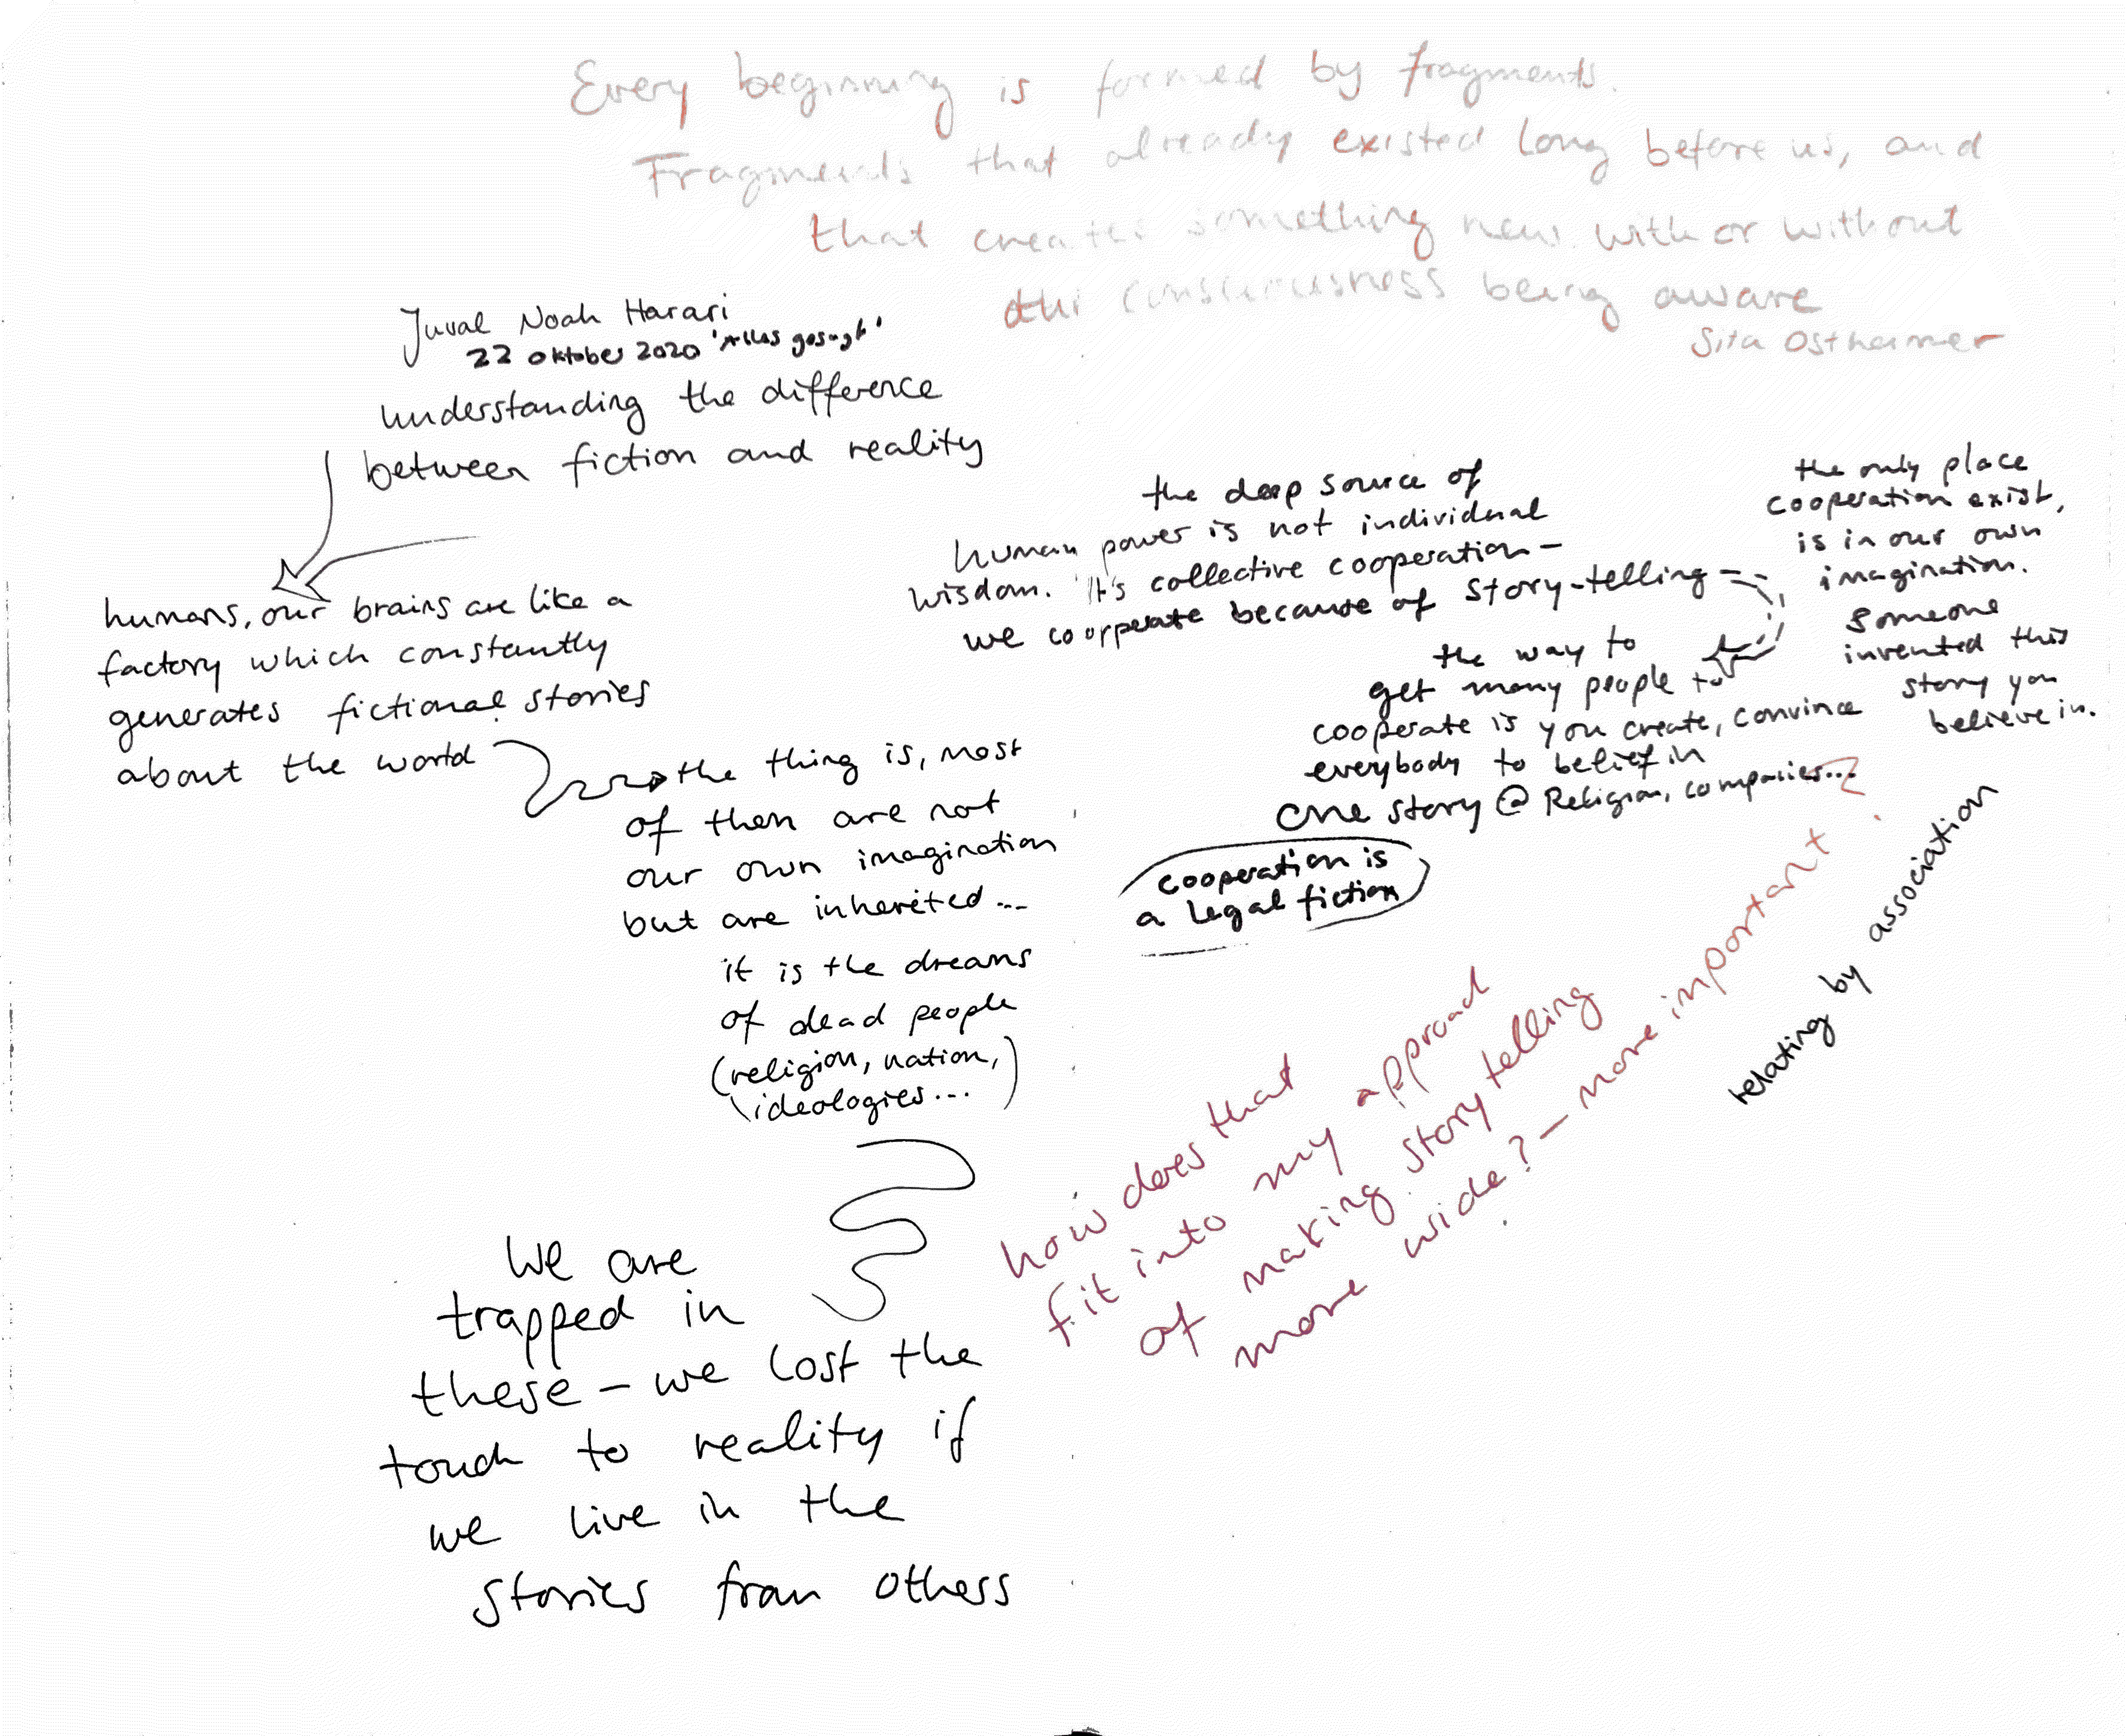 Every beginning is formed by fragments.
Fragments that already existed long before us, and
that creates something new with or without
the consciousness being aware
Sita Ostheimer
Juval Noah Harari
22 oktober 2020 'Alles gesagt'
understanding the difference
between fiction and reality
humans, our brains are like a
factory which constantly
generates fictional stories
about the world
the thing is, most
of them are not
our own imagination
but are inherited...
it is the dreams
of dead people
(religion, nation,
ideologies...)
We are
trapped in
these – we lost the
touch to reality if
we live in the
stories from others
the deep source of
human power is not individual
wisdom. It's collective cooperation –
we coorperate because of story-telling
the way to
get many people to
cooperate is you create, convince
everybody to belief in
one story @ Religion, companies...
cooperation is
a legal fiction
the only place
cooperation exist,
is in our own
imagination.
Someone
invented this
story you
believe in.
how does that
fit into my approach
of making story telling
more wide? – more important?
relating by association